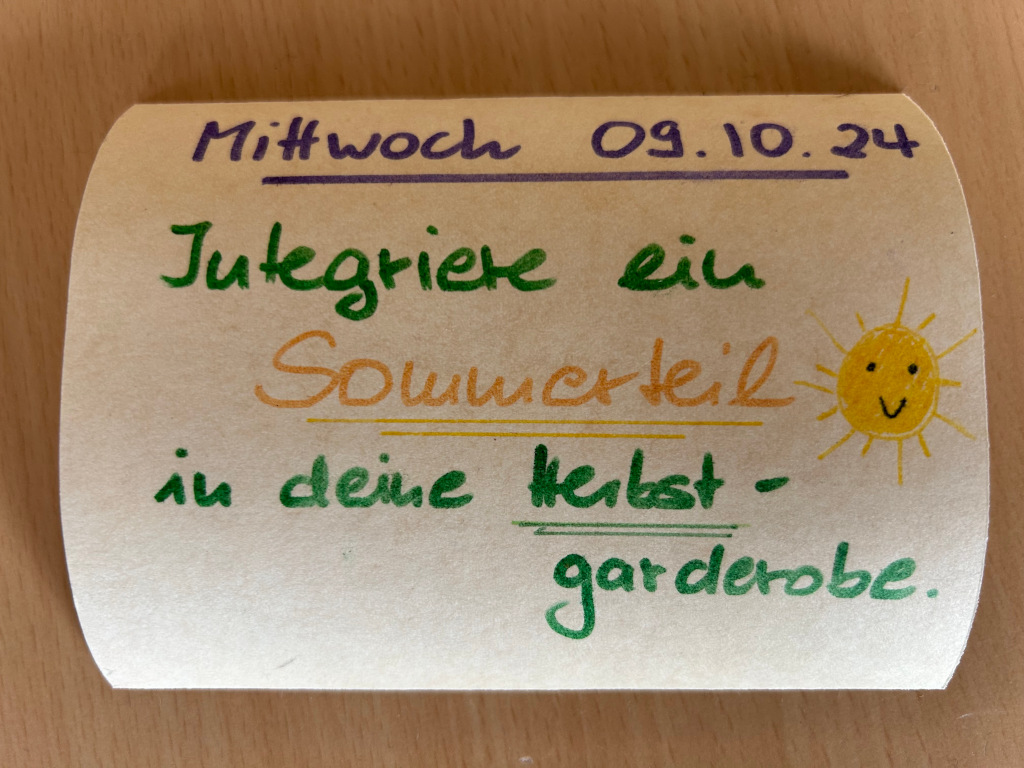 Mittwoch 09.10.24
Integriere ein
Sommerteil
in deine Herbst-
garderobe.